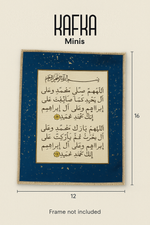 KAFKA
Minis
بِسْمِ اللهِ الرَّحْمٰنِ الرَّحِيمِ
اللّٰهُمَّ صَلِّ عَلَى مُحَمَّدٍ وَعَلَى
آلِ مُحَمَّدٍ كَمَا صَلَّيْتَ عَلَى
إِبْرَاهِيمَ وَعَلَى آلِ إِبْرَاهِيمَ
إِنَّكَ حَمِيدٌ مَجِيدٌ
اللّٰهُمَّ بَارِكْ عَلَى مُحَمَّدٍ وَعَلَى
آلِ مُحَمَّدٍ كَمَا بَارَكْتَ عَلَى
إِبْرَاهِيمَ وَعَلَى آلِ إِبْرَاهِيمَ
إِنَّكَ حَمِيدٌ مَجِيدٌ
16
12
Frame not included